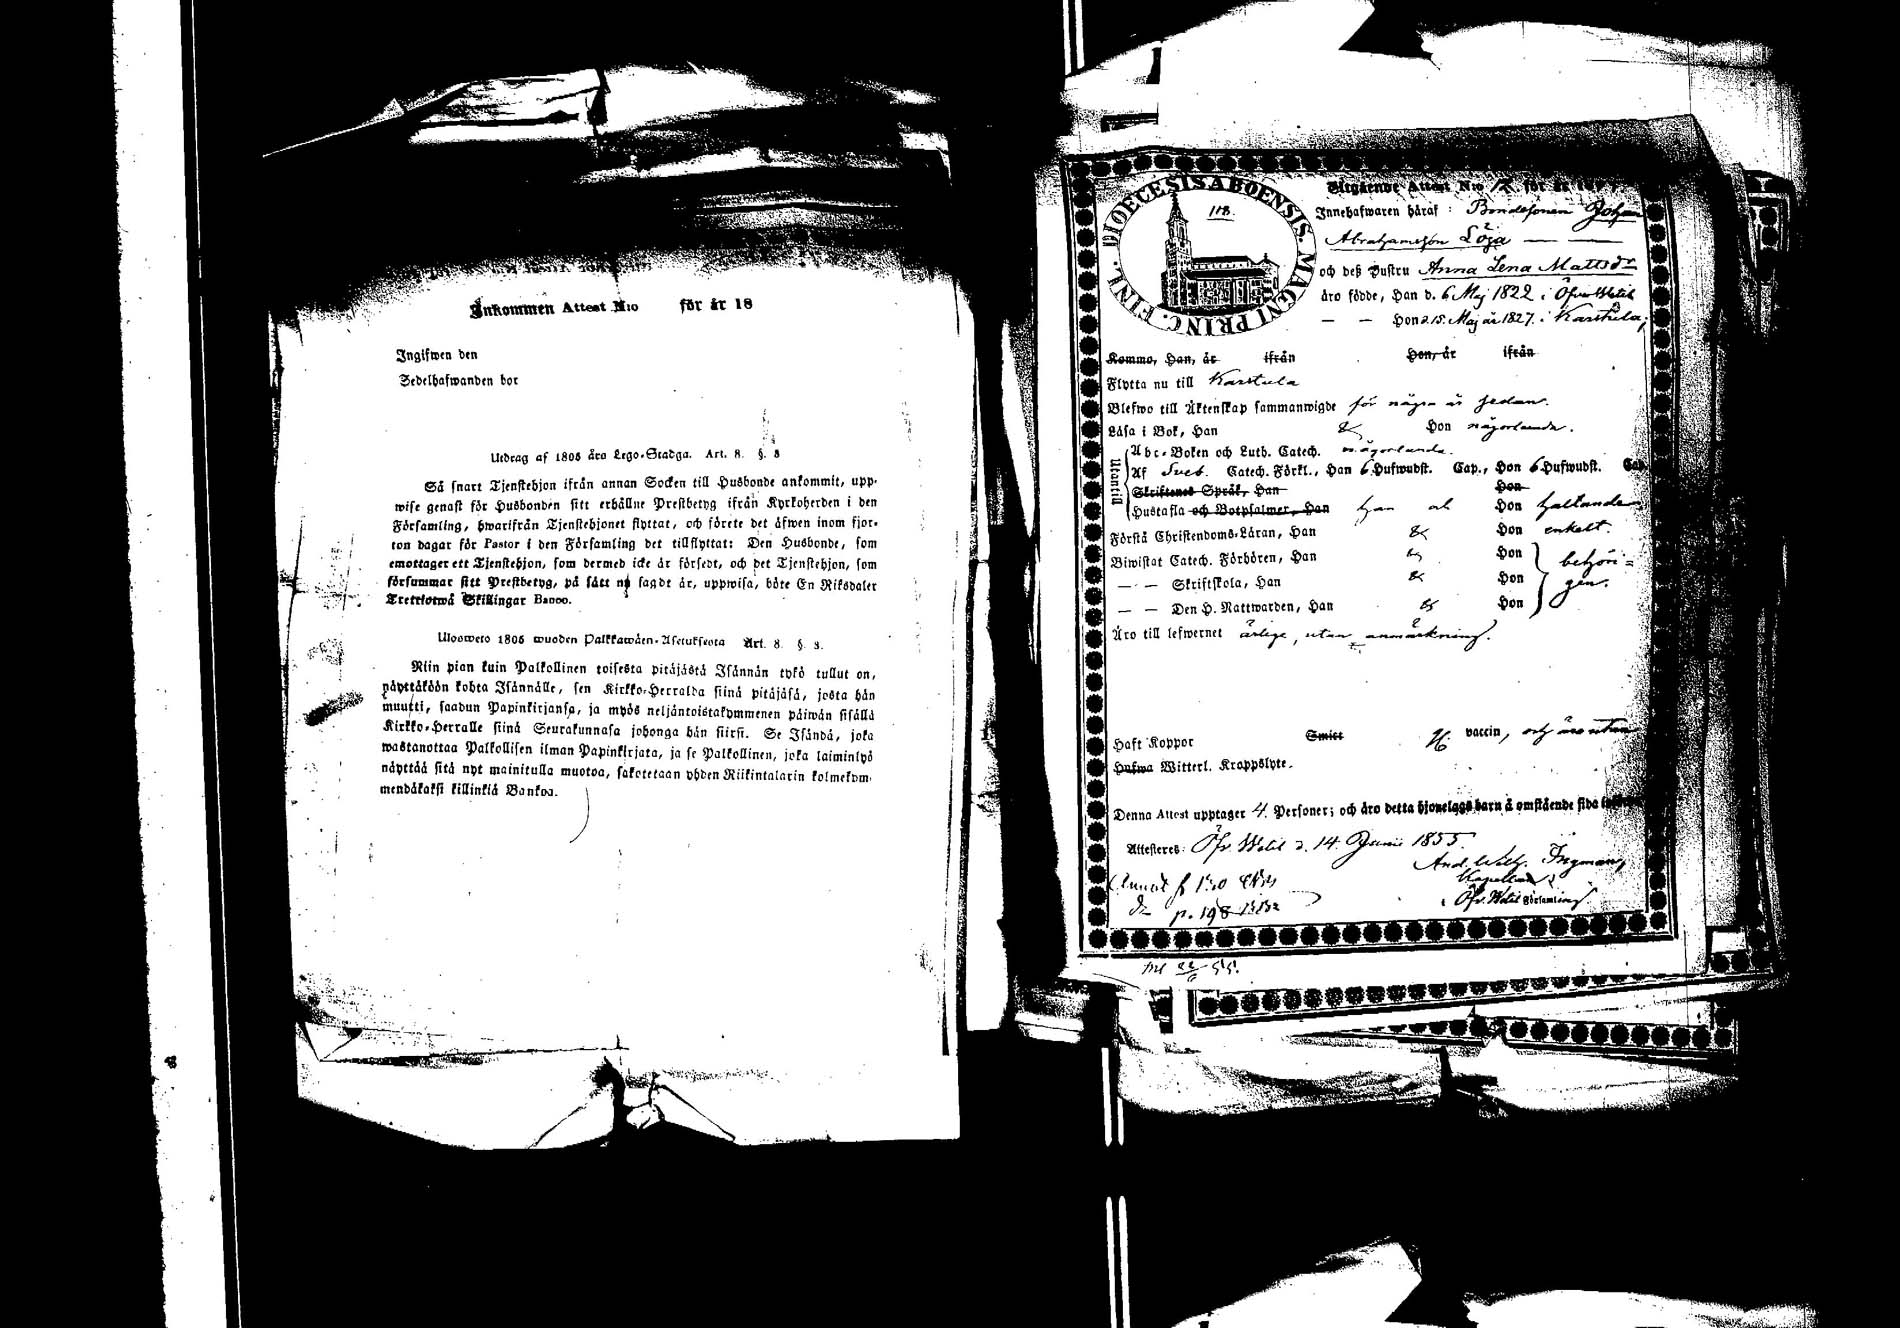 Inkommen Attest N:o för år 18
Ingifwen den
Sedelhafwanden bor
Utdrag af 1805 års Lego-Stadga. Art. 8. §. 3
Så snart Tjenstehjon ifrån annan Socken till Husbonde ankommit, upp-
wise genast för Husbonden sitt erhållne Prestbetyg ifrån Kyrkoherden i den
Församling, hwarifrån Tjenstehjonet flyttat, och förete det äfwen inom fjor-
ton dagar för Pastor i den Församling det tillflyttat: Den Husbonde, som
emottager ett Tjenstehjon, som dermed icke är försedt, och det Tjenstehjon, som
försummar sitt Prestbetyg, på sätt nu sagdt är, uppwisa, böte En Riksdaler
Trettiotwå Skillingar Banco.
Ulosweto 1805 wuoden Palkkawäen-Asetuksesta Art. 8. §. 3.
Niin pian kuin Palkollinen toisesta pitäjästä Isännän tykö tullut on,
näyttäköön kohta Isännälle, sen Kirkko-Herralda siinä pitäjäsä, josta hän
muutti, saadun Papinkirjansa, ja myös neljäntoistakymmenen päiwän sisällä
Kirkko-Herralle siinä Seurakunnasa johonga hän siirsi. Se Isändä, joka
wastanottaa Palkollisen ilman Papinkirjata, ja se Palkollinen, joka laiminlyö
näyttää sitä nyt mainitulla muotoa, sakotetaan yhden Riikintalarin kolmekym-
mendäkaksi killinkiä Bankoa.
DIOECESIS ABOENSIS. MAGNI PRINC. FINL.
118.
Utgående Attest N:o 12 för år 18
Innehafwaren häraf: Bondesonen Johan
Abrahamsson Löja
och deß Hustru Anna Lena Mattsdr
äro födde, Han d. 6 Maj 1822 i Öfver Wetil
— — Hon d. 15. Maj år 1827. i Karstula,
Komma, Han, år ifrån Hon, år ifrån
Flytta nu till Karstula
Blefwo till Äktenskap sammanwigde för några år sedan.
Läsa i Bok, Han & Hon någorlunda.
Utantill
Abc-Boken och Luth. Catech. någorlunda.
Af Sveb. Catech. Förkl., Han 6 Hufwudst. Cap., Hon 6 Hufwudst. Cap.
Skriftenes Språk, Han Hon
Hustafla och Botpsalmer, Han han och Hon
Förstå Christendoms-Läran, Han & Hon enkelt.
Biwistat Catech. Förhören, Han & Hon behöri=
— — Skriftskola, Han & Hon gen.
— — Den H. Nattwarden, Han & Hon
Äro till lefwernet ärlige, utan anmärkning.
Haft Koppor Smitt vaccin, och äro utan
Hafwa Witterl. Kroppslyte.
Denna Attest upptager 4 Personer; och äro detta hjonelags barn å omstående sida
Attesteras: Öfv. Wetil d. 14 Junii 1855.
And. Wilh. Ingman,
Kapellan
i Öfv. Wetil Församling.
p. 198